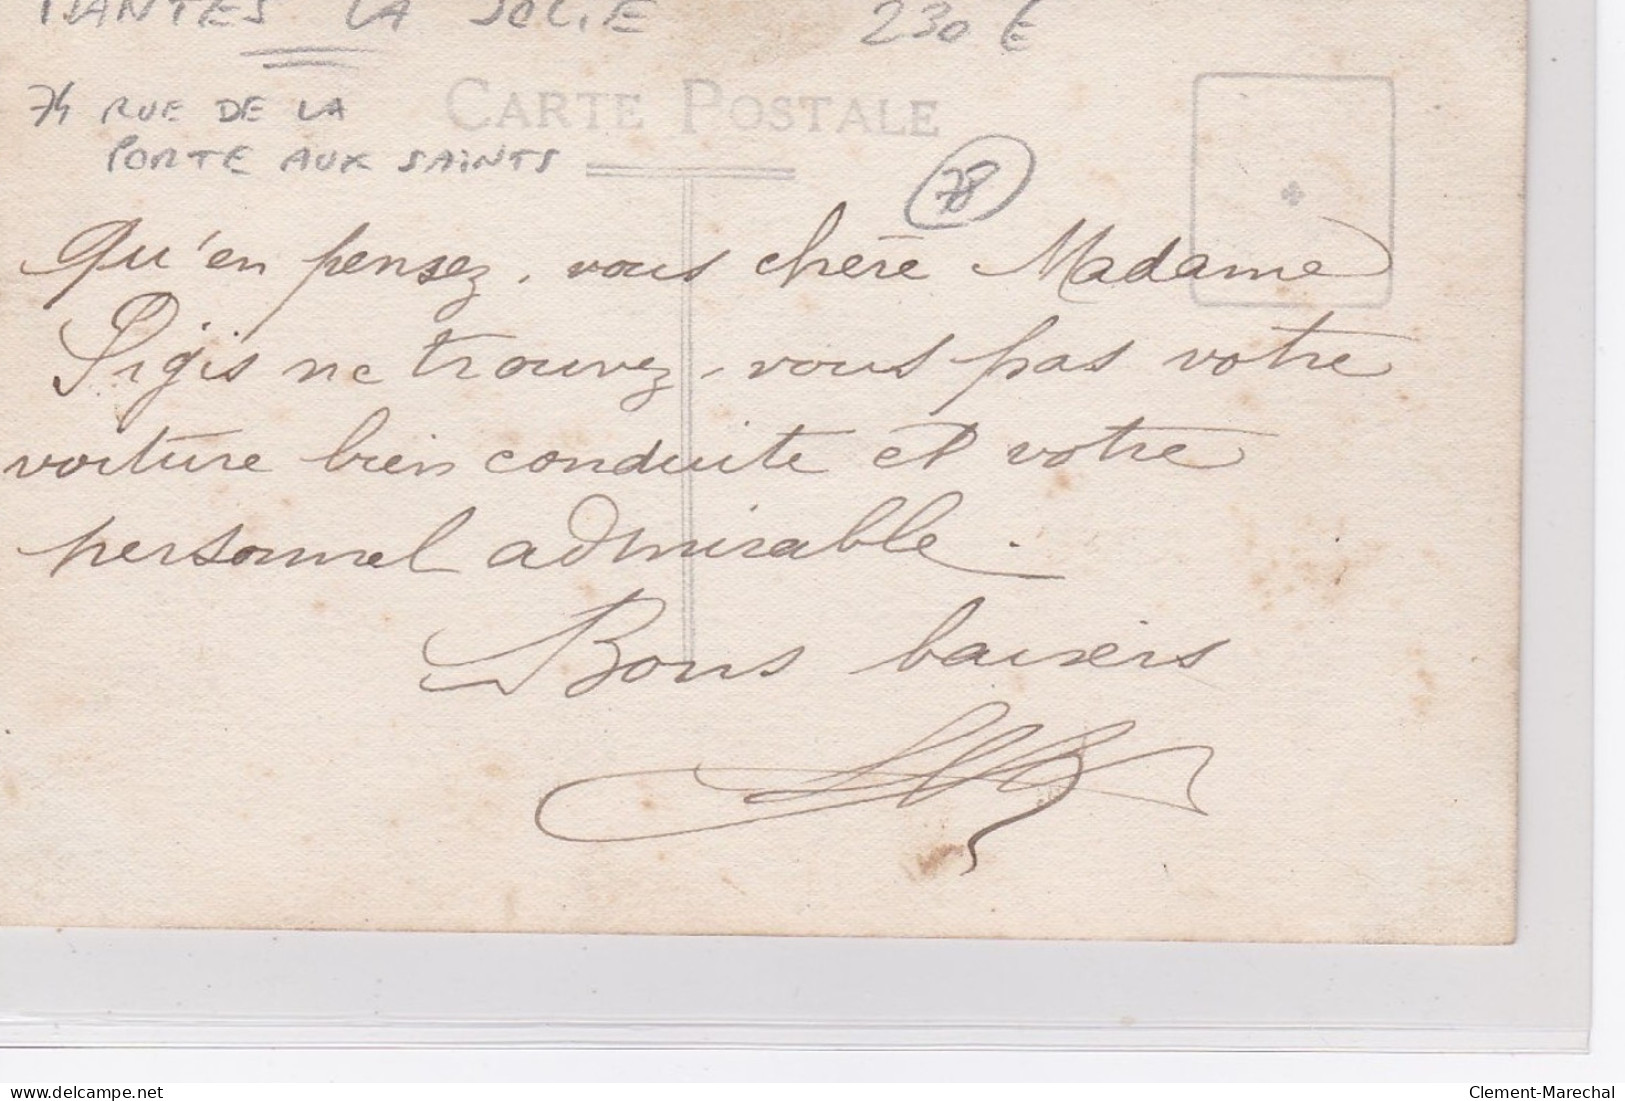 MANTES LA JOLIE 230 €
74 RUE DE LA
PORTE AUX SAINTS
CARTE POSTALE
78
Qu'en pensez-vous chère Madame
Pigis ne trouvez-vous pas votre
voiture bien conduite et votre
personnel admirable.
Bons baisers
Clement-Marechal